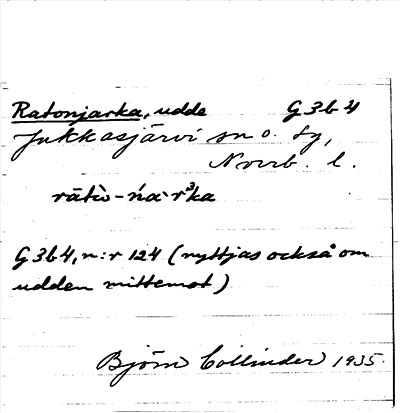 Ratonjarka, udde G3b4
Jukkasjärvi sn o. sg,
Norrb. l.
rātiò-ńa·r³ka
G3b4, n:r 124 (nyttjas också om
udden mittemot)
Björn Collinder 1935.